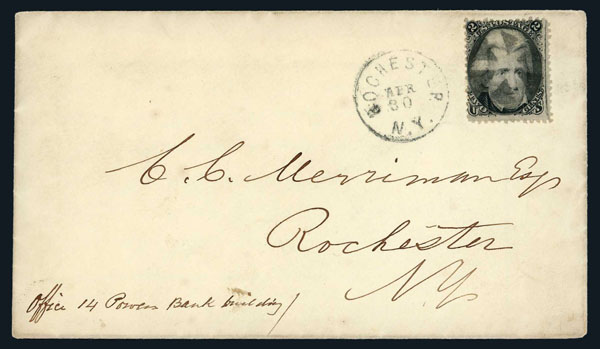 2 2
U.S. POSTAGE
ROCHESTER
APR
30
N.Y.
C. C. Merriman Esq
Rochester
NY
Office 14 Powers Bank building